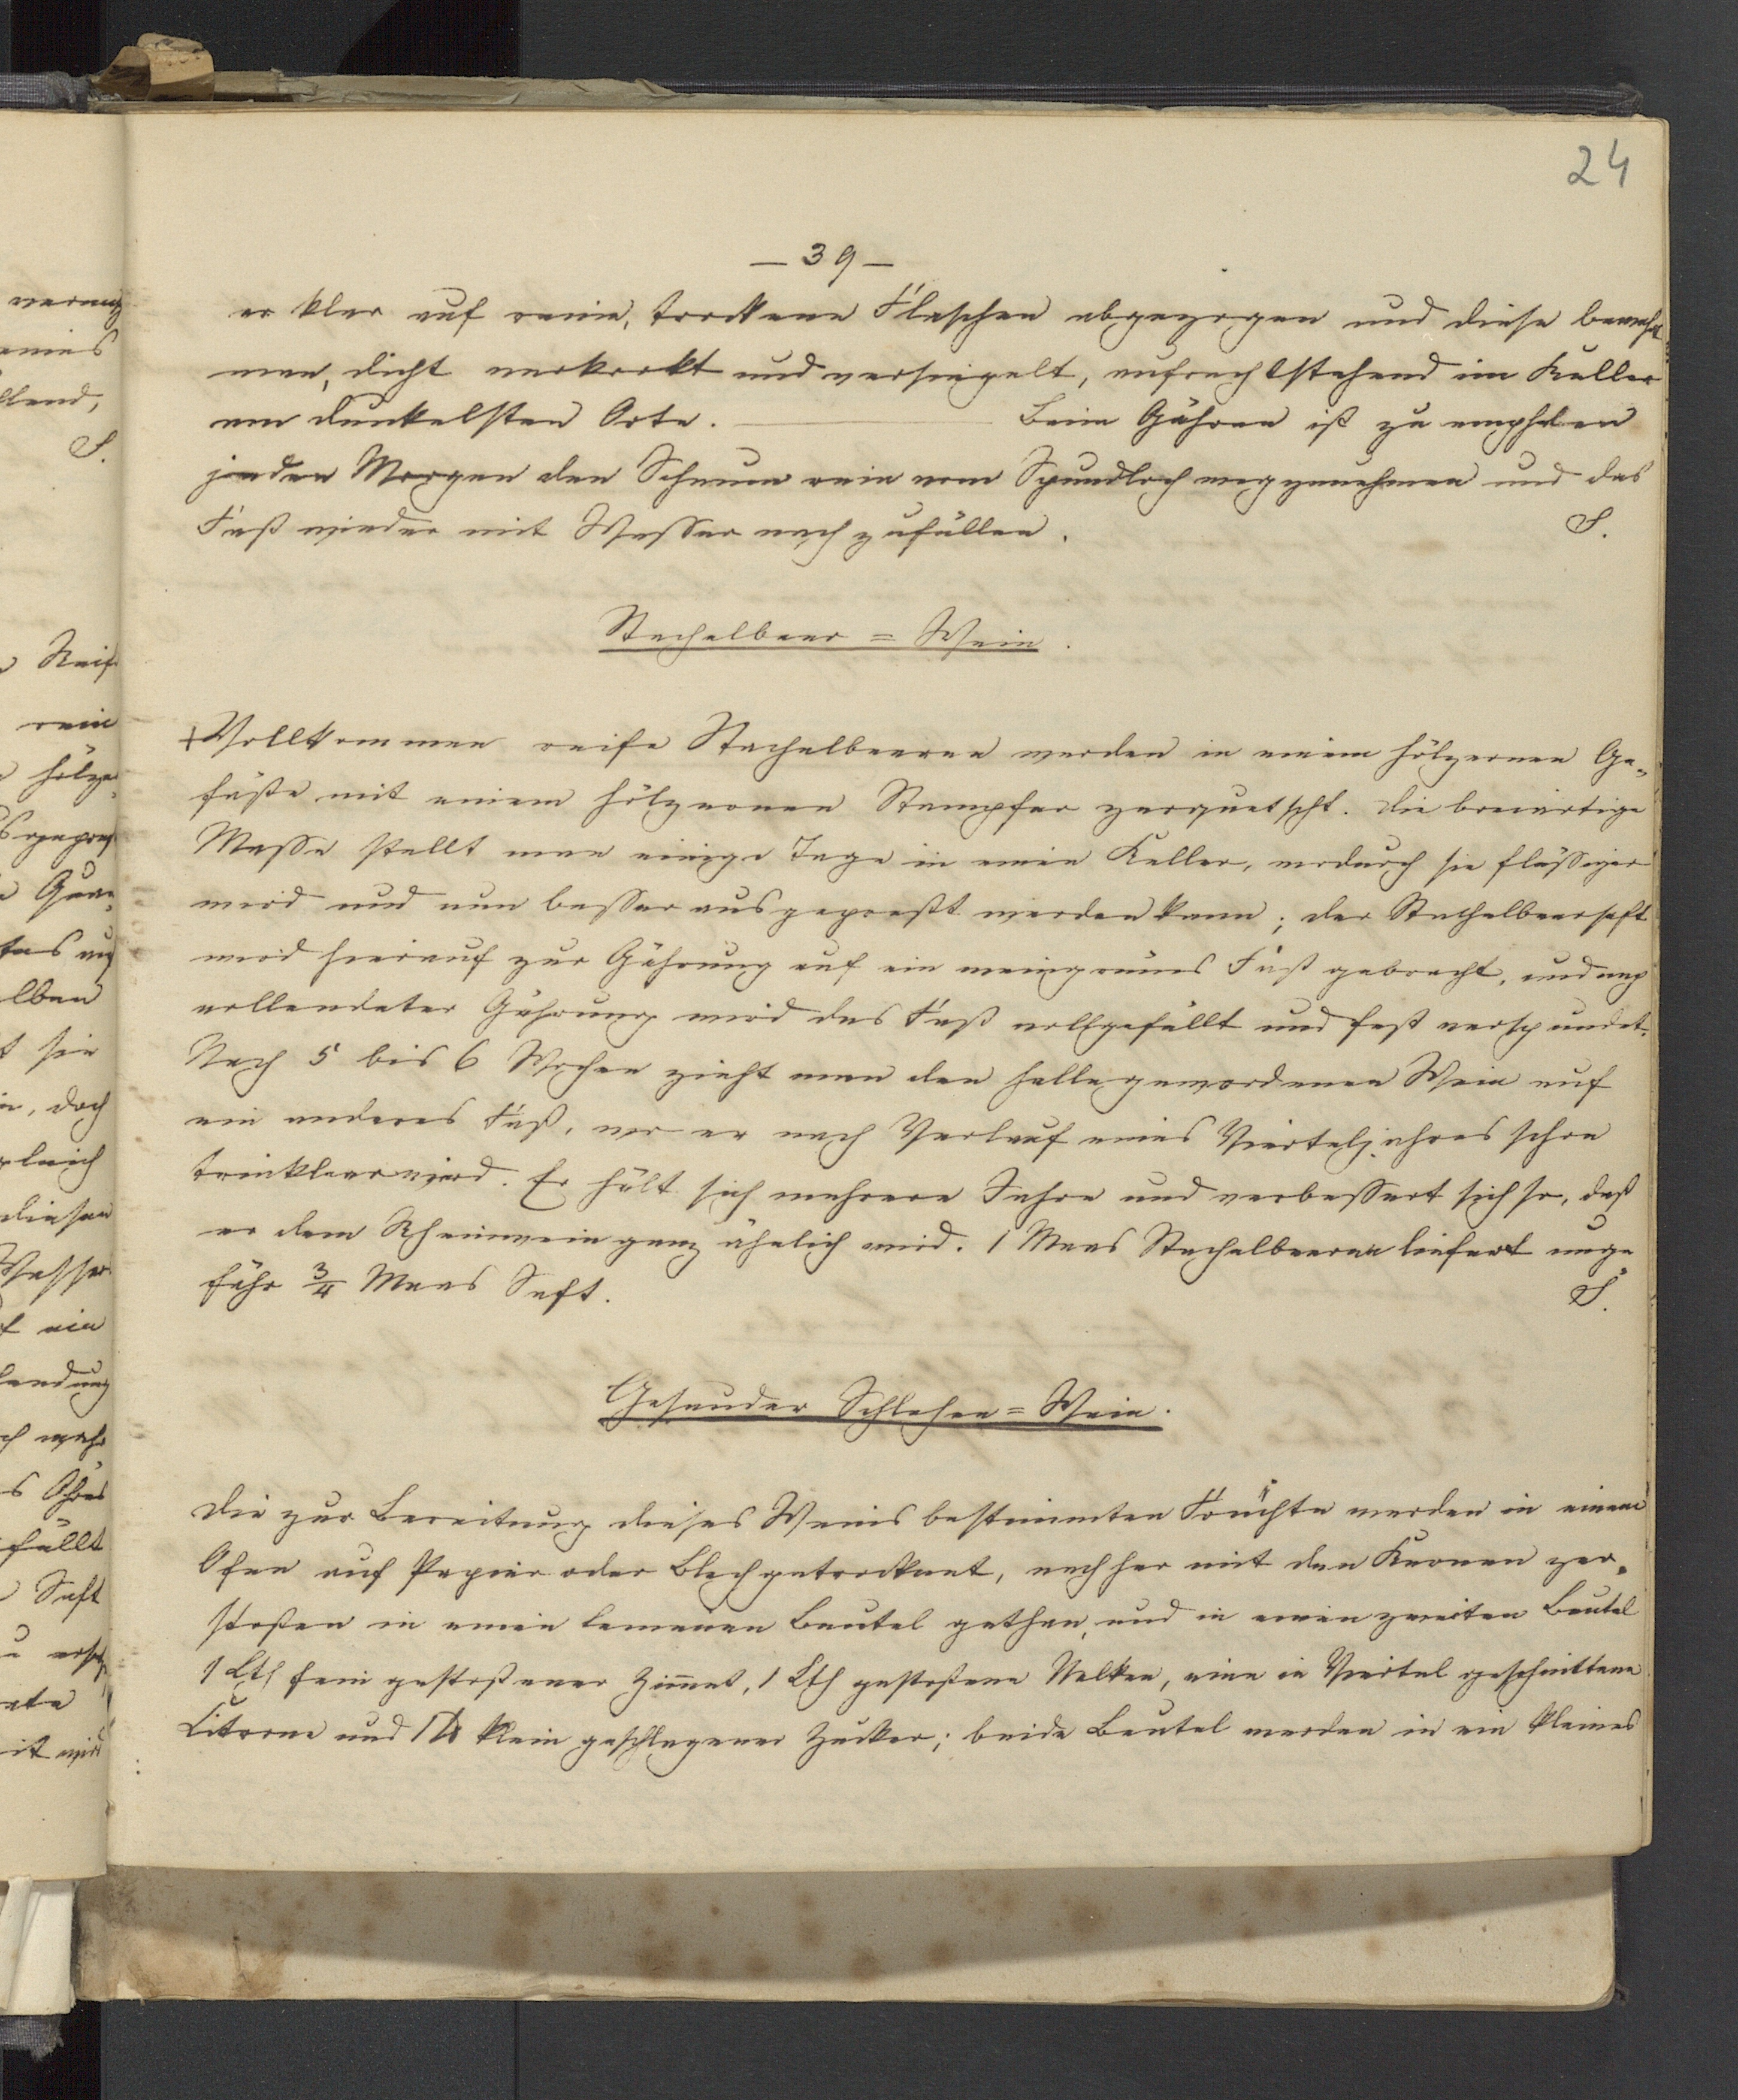 24
— 39 —
er klar auf reine, trockene Flaschen abgezogen und diese bewahrt
man, dicht verkorkt und versiegelt, aufrechtstehend im Keller
am dunkelsten Orte. — Beim Gähren ist zu empfehlen
jeden Morgen den Schaum rein vom Spundloch wegzunehmen und das
Faß wieder mit Wasser nachzufüllen. S.
Stachelbeer = Wein.
+ Vollkommen reife Stachelbeeren werden in einem hölzernen Ge-
fäße mit einem hölzernen Stampfer zerquetscht. Die breiartige
Masse stellt man einige Tage in einen Keller, wodurch sie flüssiger
wird und nun besser ausgepreßt werden kann; der Stachelbeersaft
wird hierauf zur Gährung auf ein weingrünes Faß gebracht, und nach
vollendeter Gährung wird das Faß vollgefüllt und fest verspundet.
Nach 5 bis 6 Wochen zieht man den helle gewordenen Wein auf
ein anderes Faß, wo er nach Verlauf eines Vierteljahres schon
trinkbar wird. Er hält sich mehrere Jahre und verbessert sich so, daß
er dem Rheinwein ganz ähnlich wird. 1 Maas Stachelbeeren liefert unge-
fähr 3/4 Maas Saft. S.
Gesunder Schlehen = Wein.
Die zur Bereitung dieses Weins bestimmten Früchte werden in einem
Ofen auf Papier oder Blech getrocknet, nachher mit den Kernen zer-
stoßen in einen leinenen Beutel gethan, und in einen zweiten Beutel
1 Lth fein gestoßener Zimmet, 1 Lth gestoßene Nelken, eine in Viertel geschnittene
Citrone und 1 ℔ klein geschlagener Zucker; beide Beutel werden in ein kleines